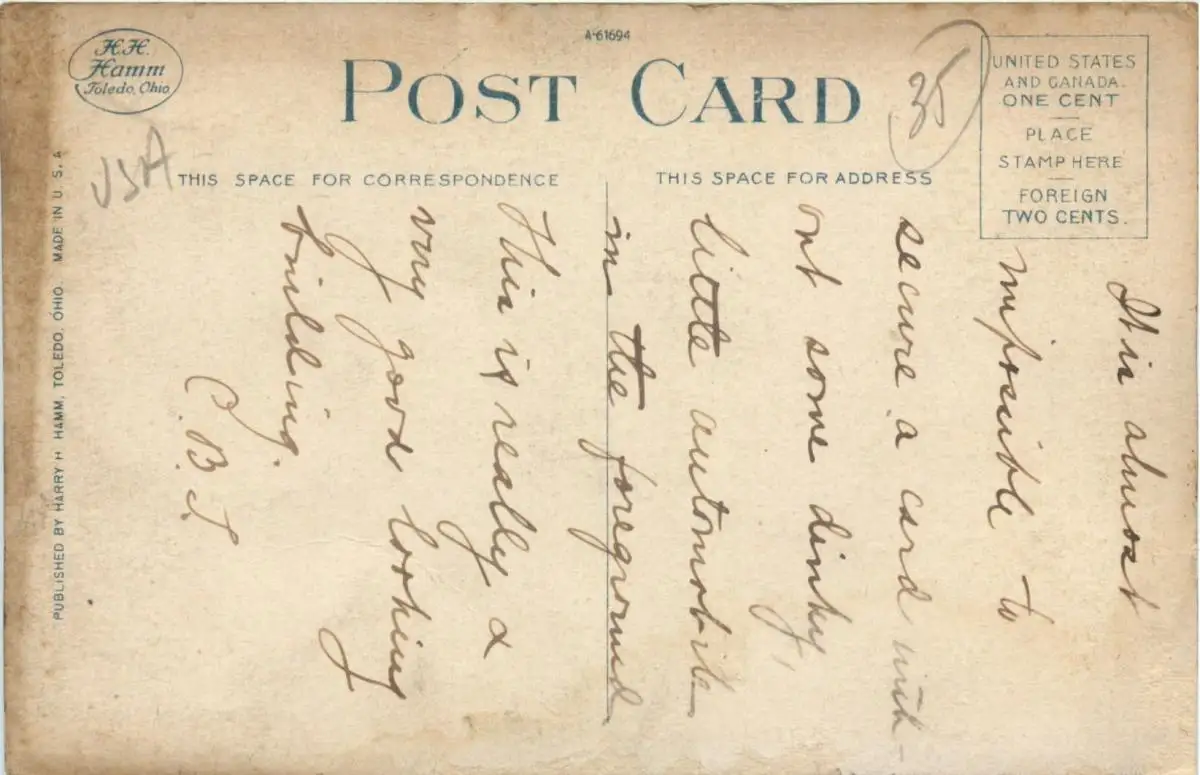 H.H.
Hamm
Toledo, Ohio
A-61694
POST CARD
35
UNITED STATES
AND CANADA.
ONE CENT
PLACE
STAMP HERE
FOREIGN
TWO CENTS.
USA
THIS SPACE FOR CORRESPONDENCE
THIS SPACE FOR ADDRESS
PUBLISHED BY HARRY H HAMM, TOLEDO, OHIO. MADE IN U. S. A
It is almost
imposible to
secure a card with-
out some dinky,
little automobile
in the foreground
This is really a
very good looking
building.
C.B.J.